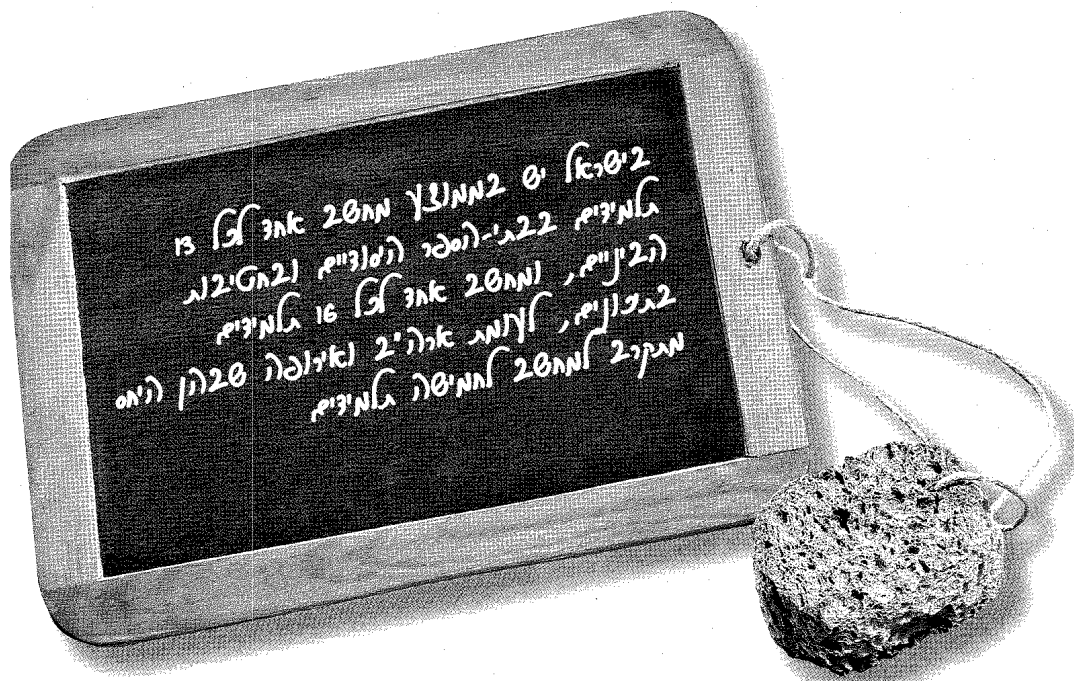 בישראל יש בממוצע מחשב אחד לכל 13
תלמידים בבתי-הספר היסודיים ובחטיבות
הביניים, ומחשב אחד לכל 16 תלמידים
בתיכונים, לעומת ארה"ב ואירופה שבהן היחס
מתקרב למחשב לחמישה תלמידים